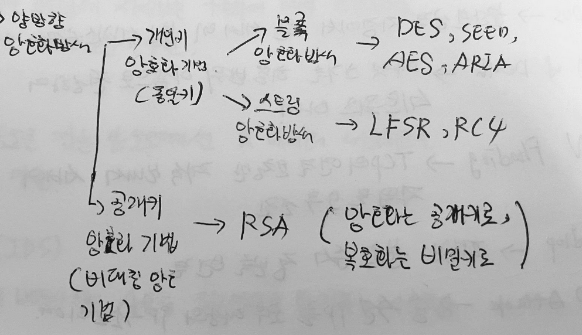 > 양방향
암호화방식
→ 개인키
암호화 기법
(동일키)
→ 블록
암호화방식
→ DES, SEED,
AES, ARIA
→ 스트림
암호화방식 → LFSR, RC4
→ 공개키
암호화 기법
(비대칭 암호
기법)
→ RSA
( 암호화는 공개키로,
복호화는 비밀키로 )